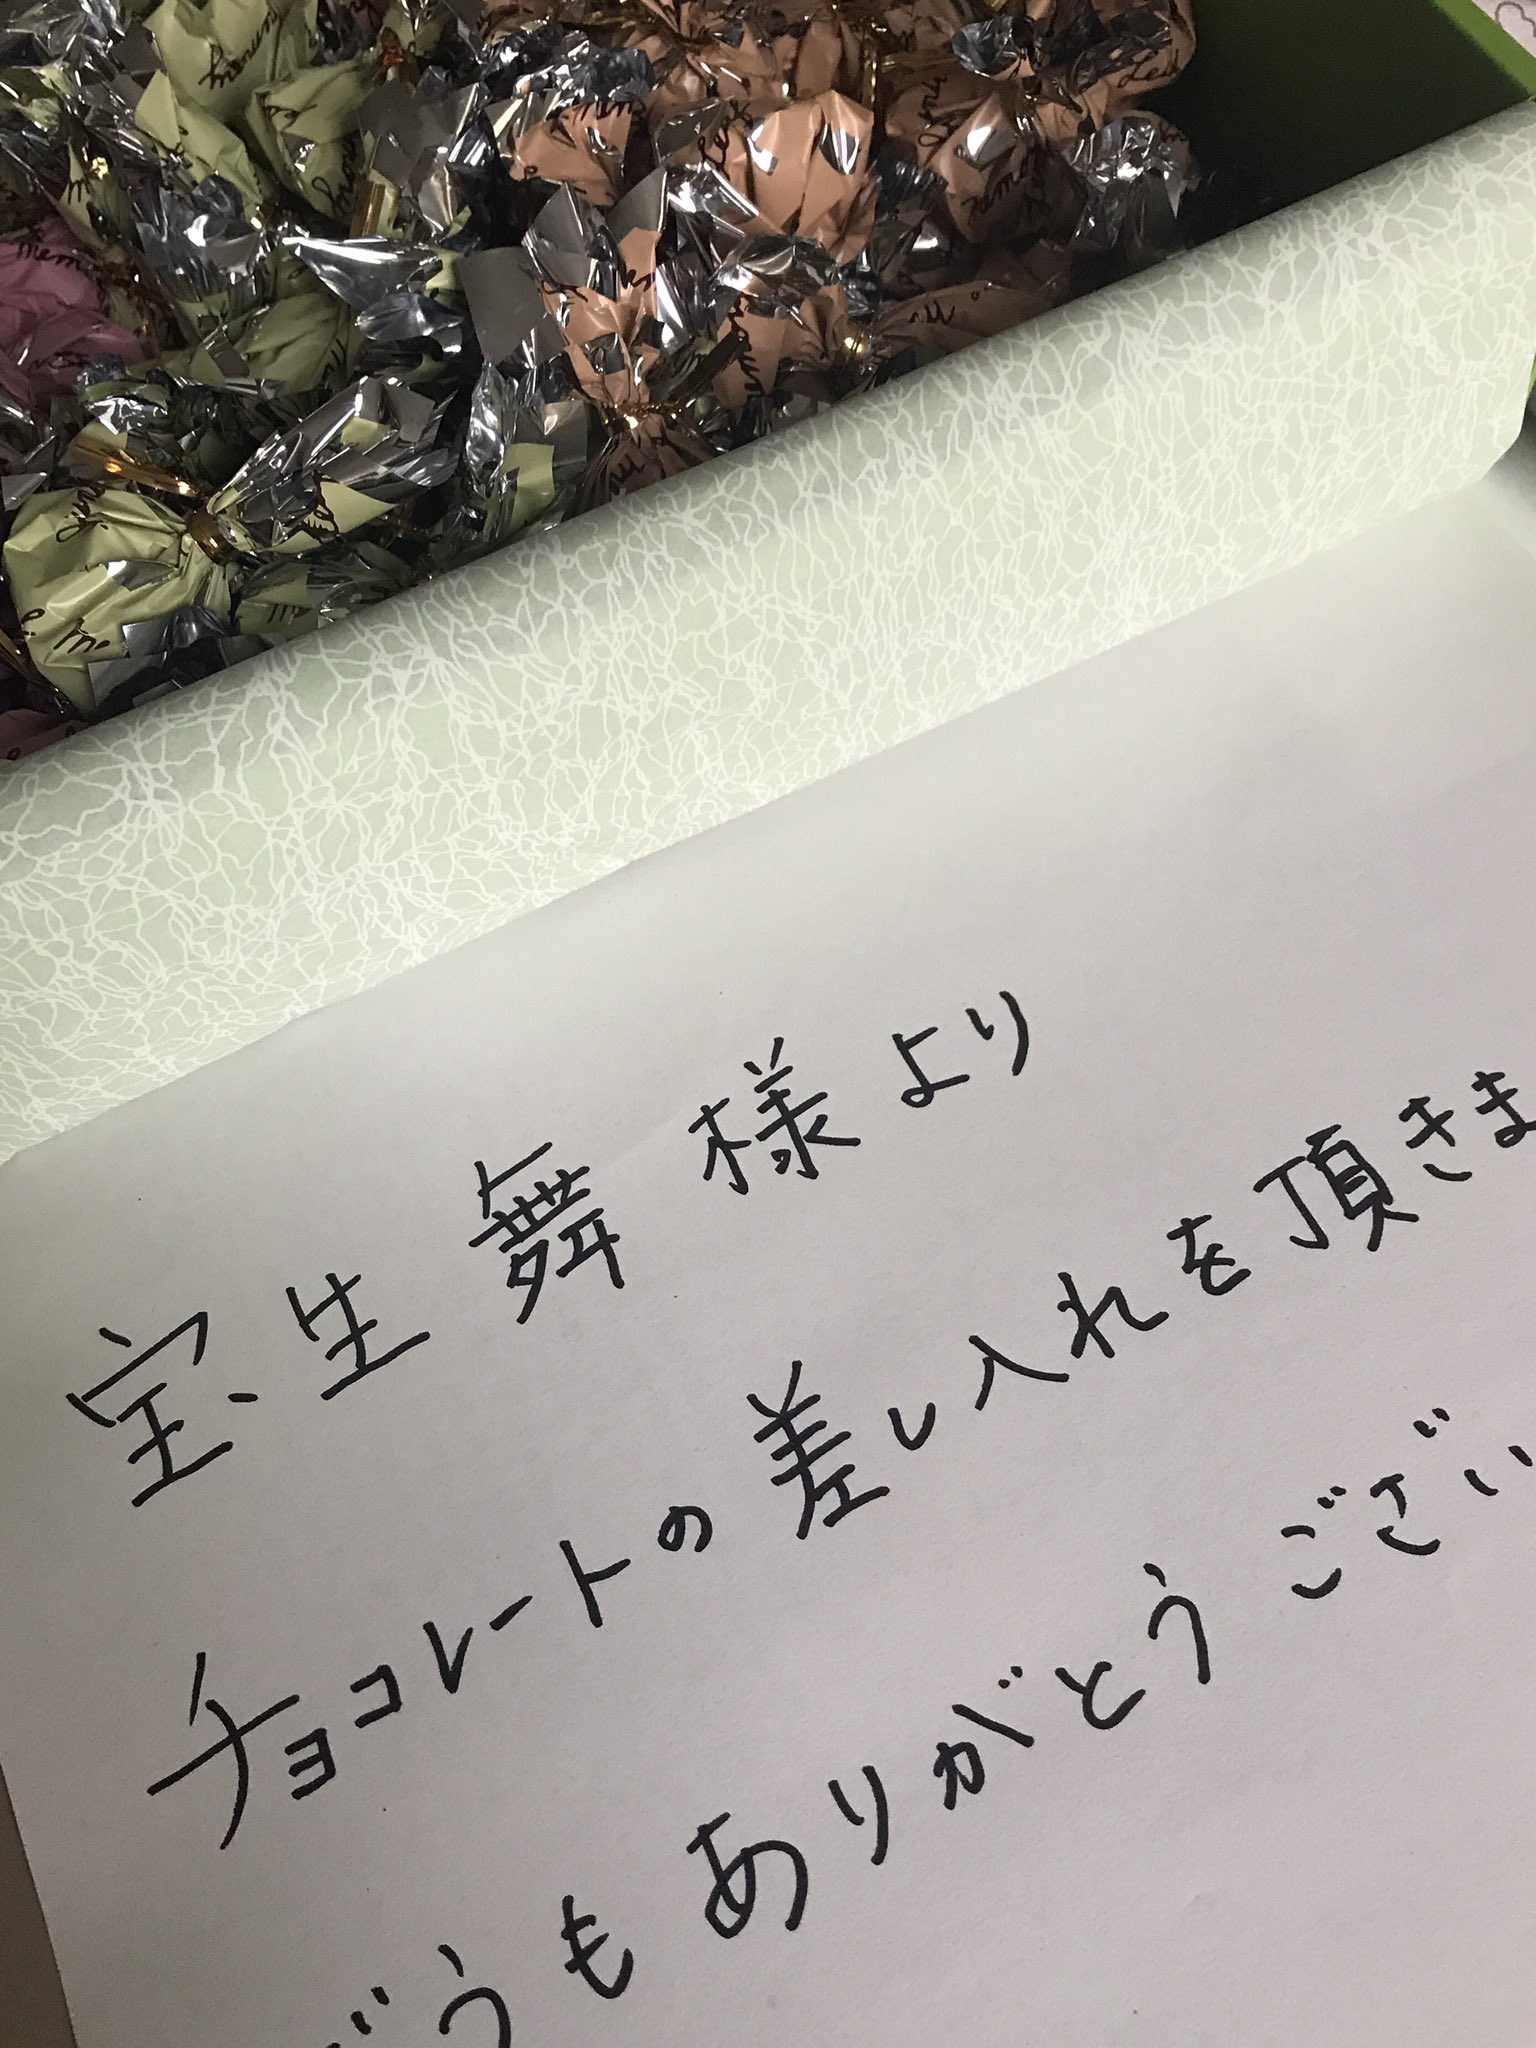 宝生 舞 様より
チョコレートの差し入れを頂きま
どうもありがとうござい